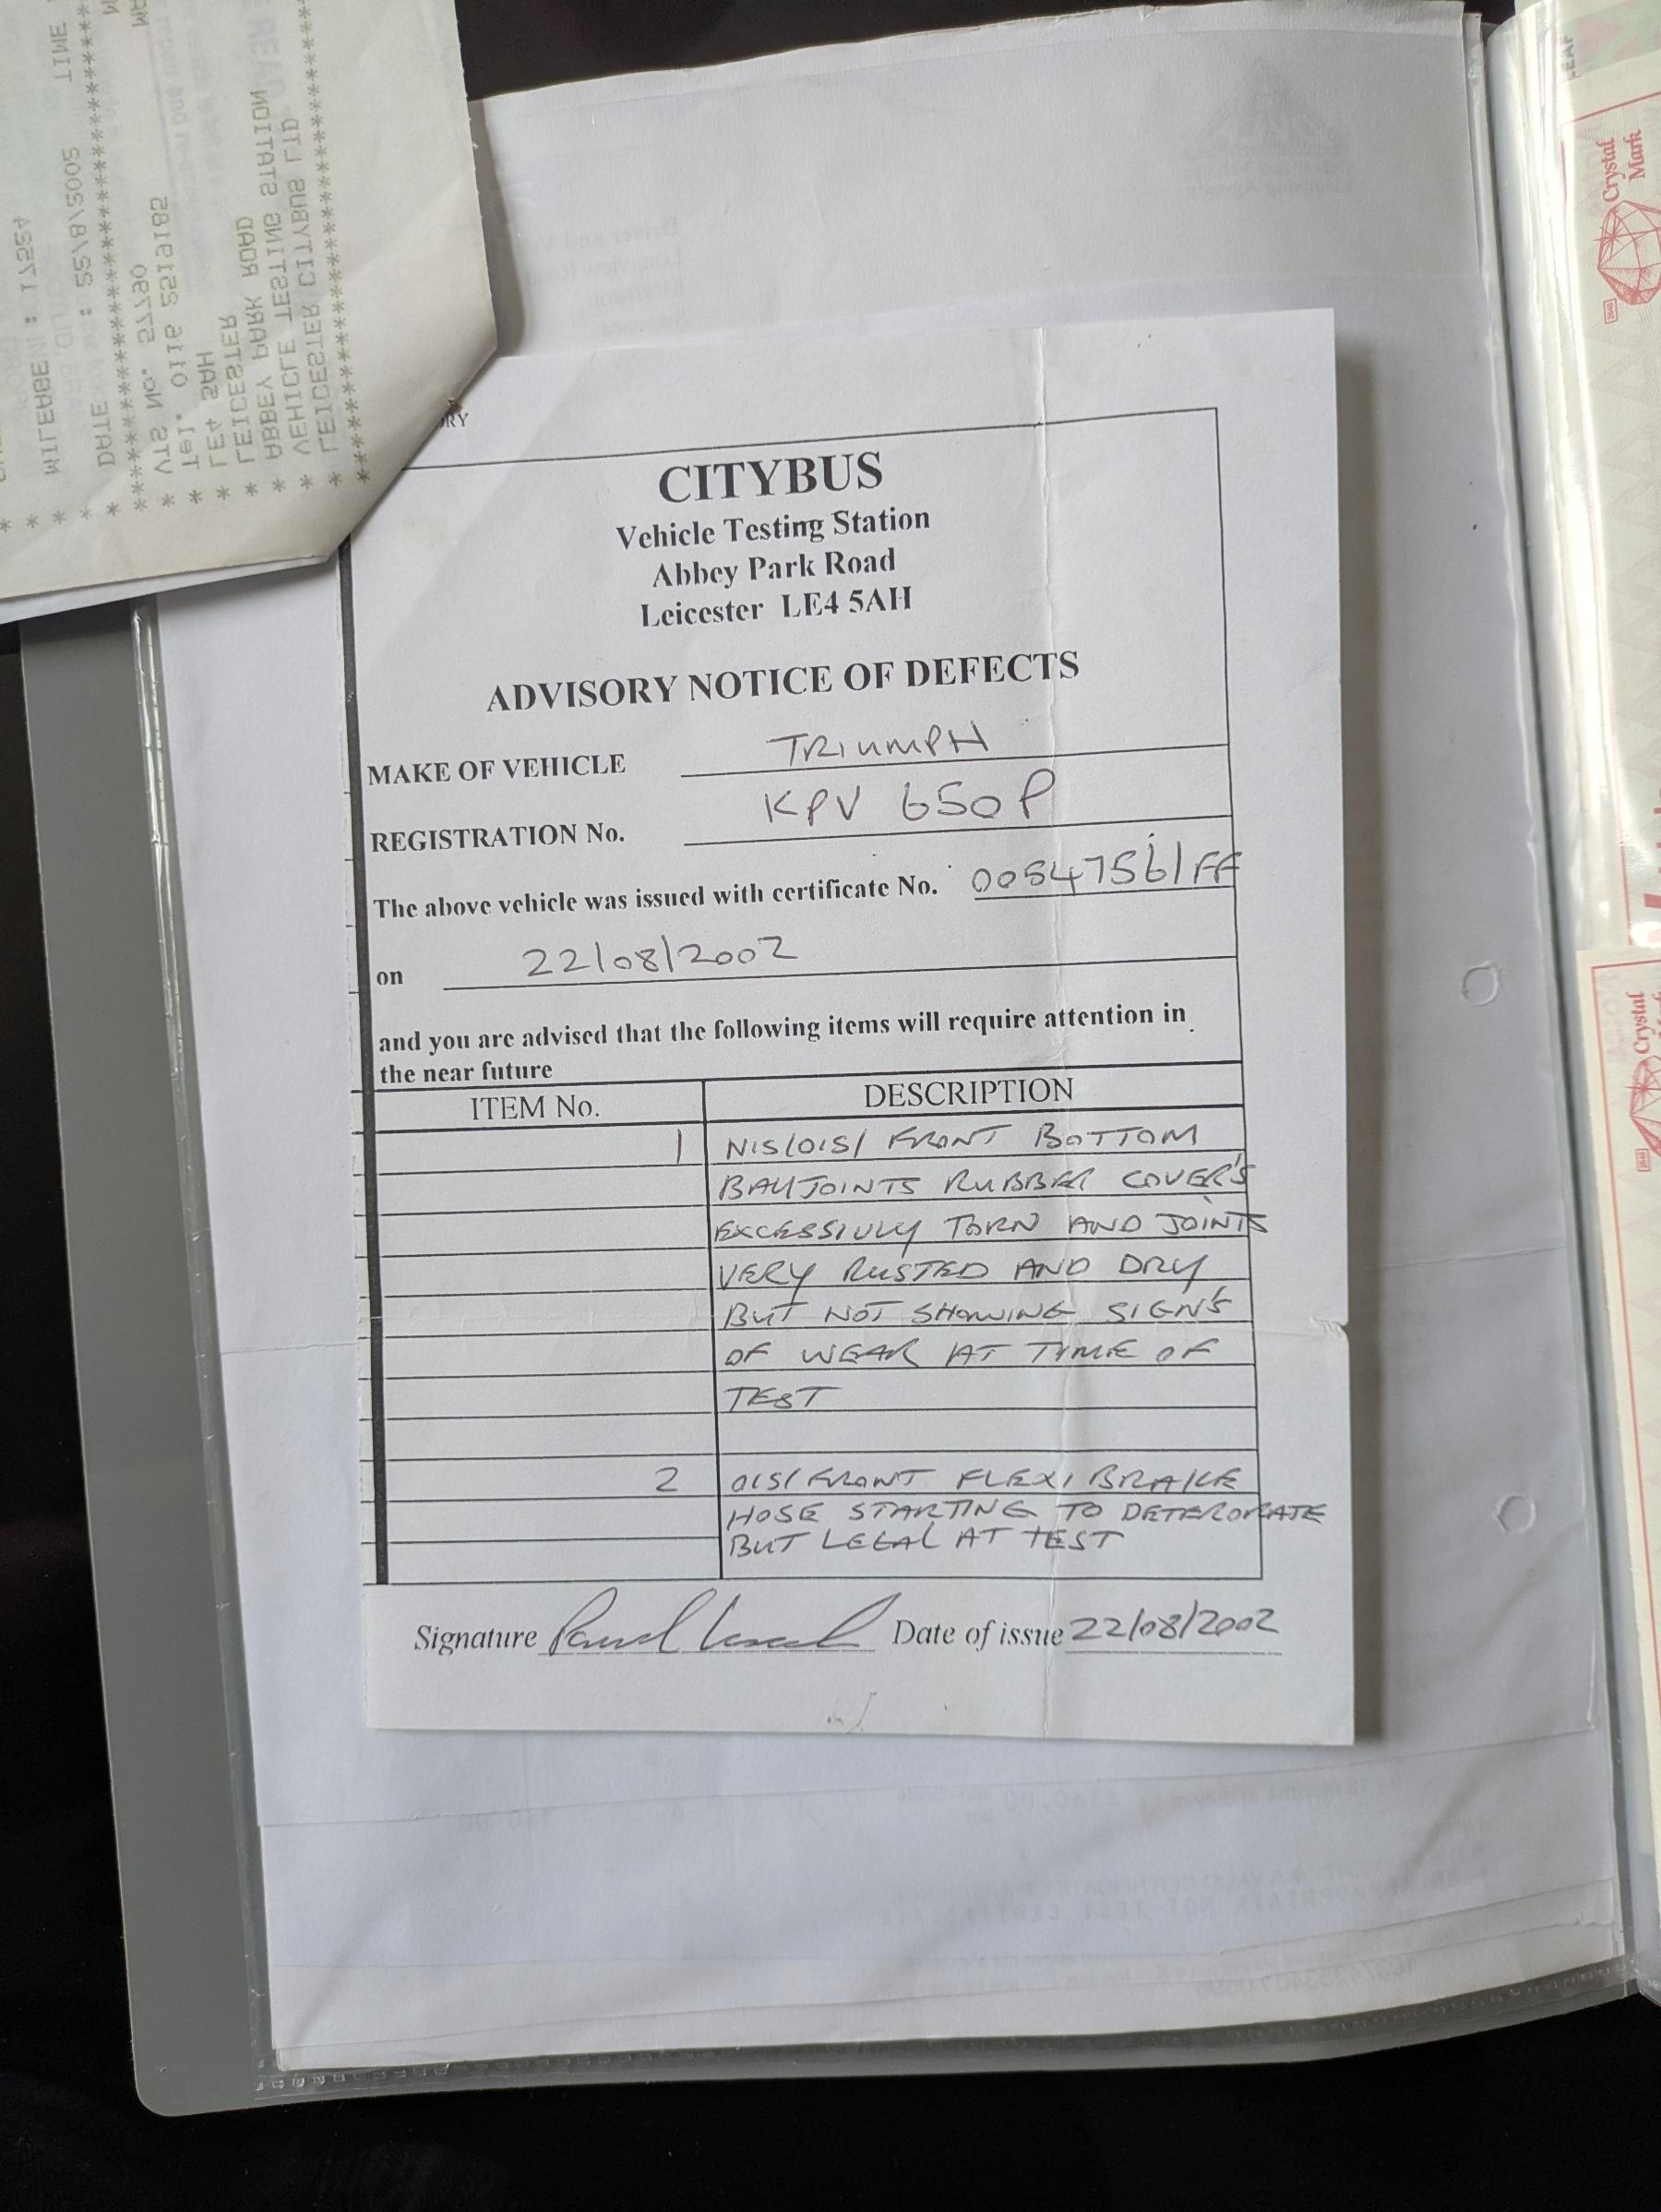 MILEAGE : 17524
TIME
DATE : 22/8/2002
VTS No. 57790
Tel. 0116 2519185
LE4 5AH
LEICESTER
ABBEY PARK ROAD
VEHICLE TESTING STATION
LEICESTER CITYBUS LTD
Crystal
Mark
Crystal
CITYBUS
Vehicle Testing Station
Abbey Park Road
Leicester LE4 5AH
ADVISORY NOTICE OF DEFECTS
MAKE OF VEHICLE TRIUMPH
REGISTRATION No. KPV 650P
The above vehicle was issued with certificate No. 00547561FF
on 22/08/2002
and you are advised that the following items will require attention in
the near future
ITEM No. DESCRIPTION
1 N/S/O/S/ FRONT BOTTOM
BALLJOINTS RUBBER COVER'S
EXCESSIVLY TORN AND JOINTS
VERY RUSTED AND DRY
BUT NOT SHOWING SIGN'S
OF WEAR AT TIME OF
TEST
2 O/S/ FRONT FLEXI BRAKE
HOSE STARTING TO DETERORATE
BUT LEGAL AT TEST
Signature Date of issue 22/08/2002